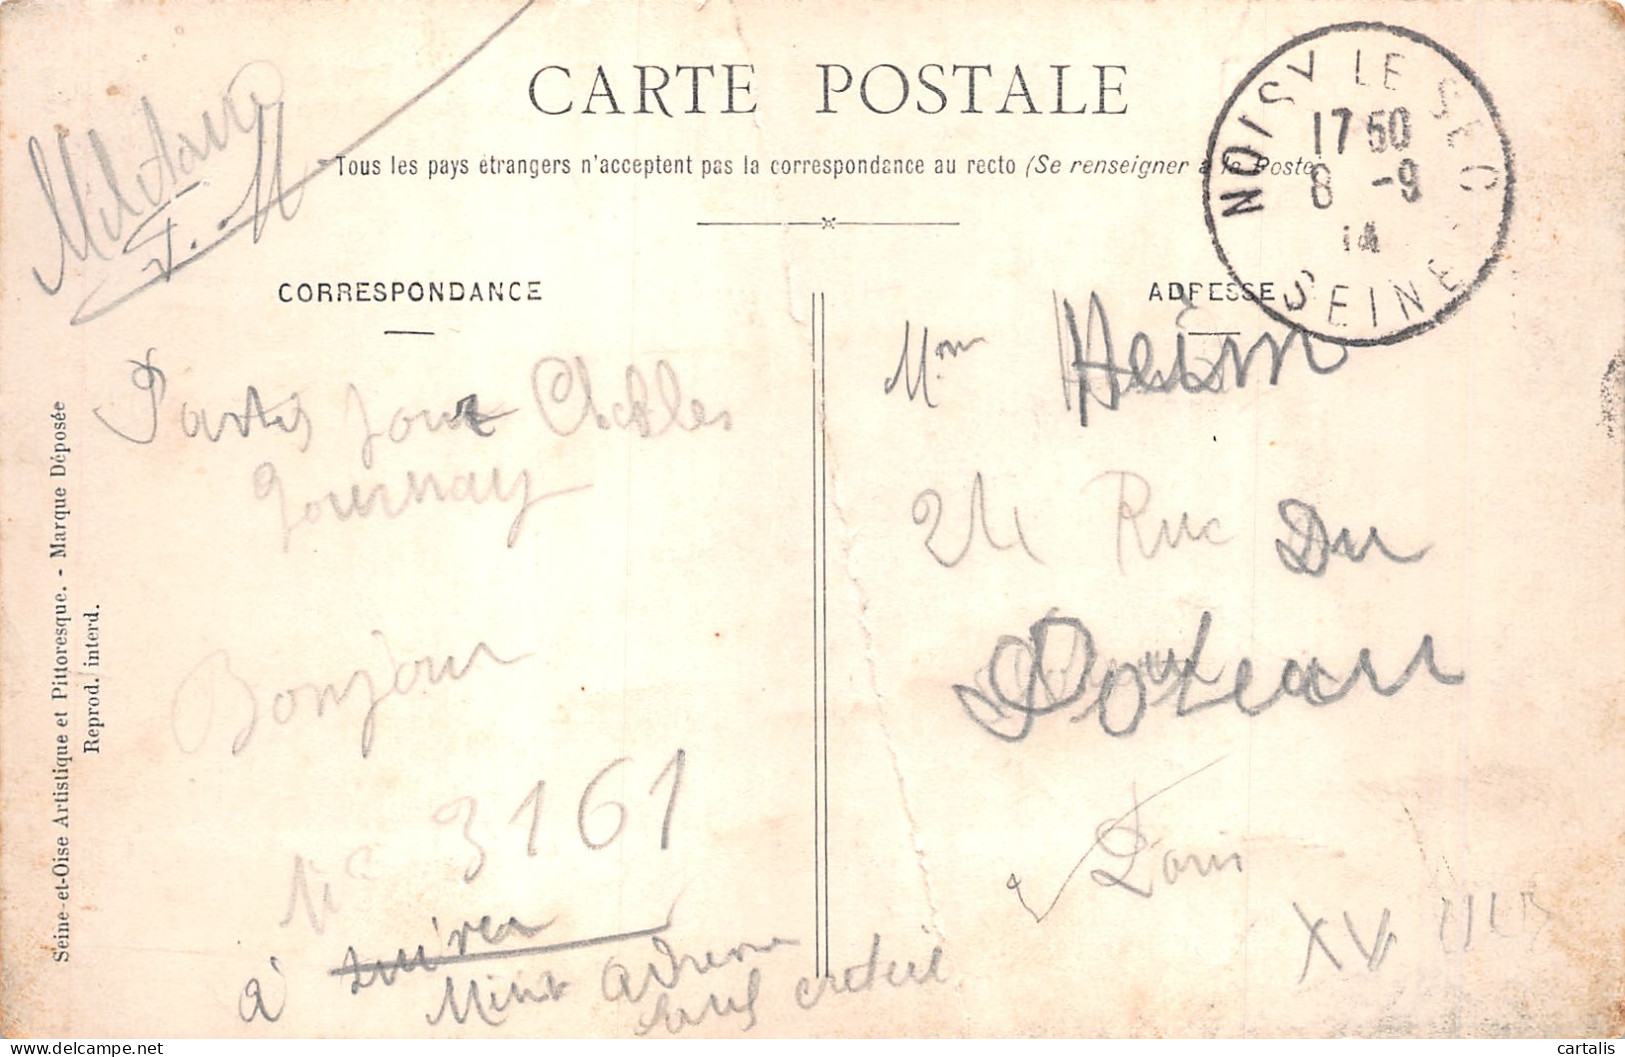 CARTE POSTALE
Tous les pays étrangers n'acceptent pas la correspondance au recto (Se renseigner à la Poste
NOISY LE SEC
17 50
8 -9
14
SEINE
F. M.
CORRESPONDANCE
ADRESSE
Mme
21 Rue Du
Poteau
Paris
XV
Partis pour
Gournay
Bonjour
3161
à suivre
Seine-et-Oise Artistique et Pittoresque. - Marque Déposée
Reprod. interd.
cartalis